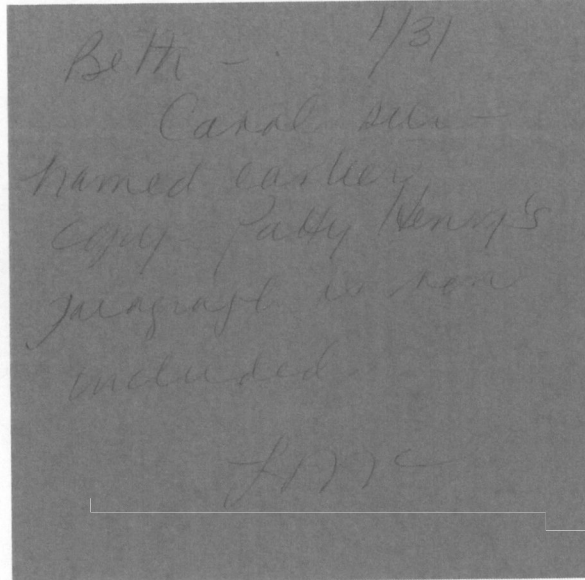 Beth - 1/31
Canal
named earlier
copy - Patty Henry's
paragraph is now
included.